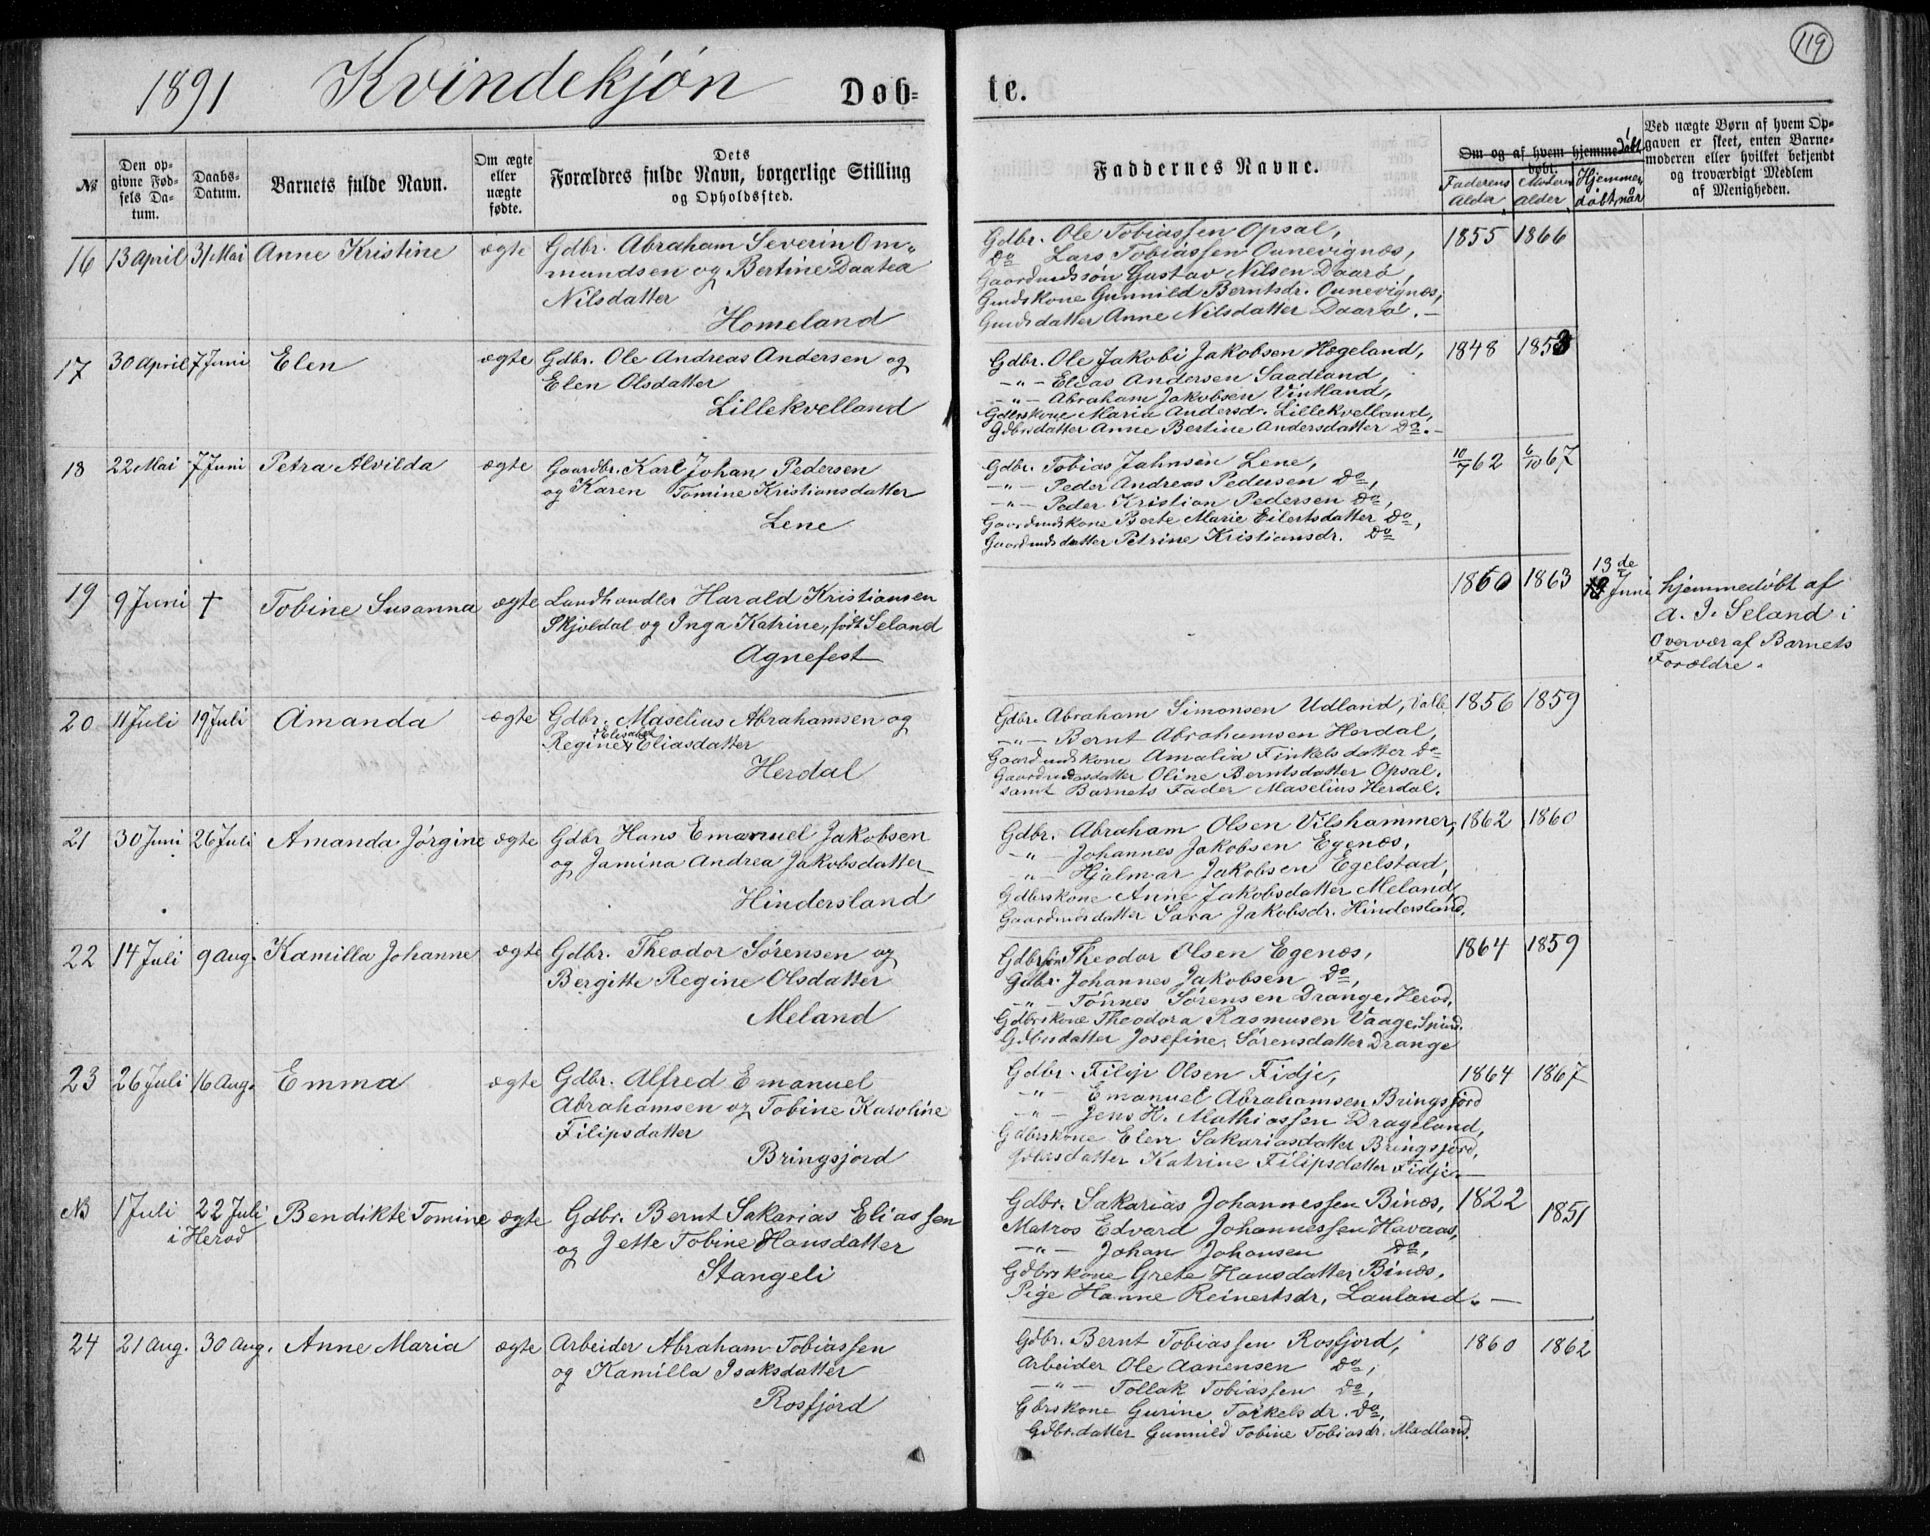 119
1891 Kvindekjön Døb= te.
№
Den op-
givne Fød-
sels Da-
tum.
Daabs-
Datum.
Barnets fulde Navn.
Om ægte
eller
uægte
fødte.
Dets
Forældres fulde Navn, borgerlige Stilling
og Opholdssted.
Faddernes Navne.
Om og af hvem hjemme-
døbt.
döbt
Faderens
Alder
Moderens
Alder
Hjemme-
döbt naar
Ved uægte Børn af hvem Op-
gaven er skeet, enten Barne-
moderen eller hvilket bekjendt
og troværdigt Medlem
af Menigheden.
16 13 April 31 Mai Anne Kristine ægte Gdbr. Abraham Severin Om-
mundsen og Bertine Daatea
Nilsdatter
Homeland
Gdbr. Ole Tobiassen Opsal, 1855 1866
Do Lars Tobiassen Ounevignæs,
Gaardmdssön Gustav Nilsen Daarö,
Gmdskone Gunnild Berntsdr. Ounevignæs,
Gmdsdatter Anne Nilsdatter Daarö. —
17 30 April 7 Juni Elen ægte Gdbr. Ole Andreas Andersen og
Elen Olsdatter
Lillekvelland
Gdbr. Ole Jakobi Jakobsen Hægeland, 1848 1853
-"- Elias Andersen Saadland,
-"- Abraham Jakobsen Vintland,
Gdbrskone Maria Andersd. Lillekvelland,
Gdbrsdatter Anne Bertine Andersdatter Do. —
18 22 Mai 7 Juni Petra Alvilda ægte Gaardbr. Karl Johan Pedersen
og Karen Tomine Kristiansdatter
Lene
Gdbr. Tobias Jahnsen Lene, 10/7 62 6/10 67
-"- Peder Andreas Pedersen Do,
-"- Peder Kristian Pedersen Do,
Gaardmdskone Berte Marie Eilertsdatter Do,
Gaardmdsdatter Petrine Kristiansdr. Do
19 9 Juni † Tobine Susanna ægte Landhandler Harald Kristiansen
Skjoldal og Inga Katrine, födt Seland
Agnefest
1860 1863 13de
Juni hjemmedöbt af
A. I. Seland i
Overvær af Barnets
Forældre.
20 11 Juli 19 Juli Amanda ægte Gdbr. Maselius Abrahamsen og
Elisabed
Regine Eliasdatter
Herdal
Gdbr. Abraham Simonsen Udland, Valle 1856 1859
-"- Bernt Abrahamsen Herdal,
Gaardmdskone Amalia Finkelsdatter Do
Gaardmandsdatter Oline Berntsdatter Opsal.
samt Barnets Fader Maselius Herdal.
21 30 Juni 26 Juli Amanda Jörgine ægte Gdbr Hans Emanuel Jakobsen
og Jamina Andrea Jakobsdatter
Hindersland
Gdbr. Abraham Olsen Vilshammer, 1862 1860
-"- Johannes Jakobsen Egenæs,
-"- Hjalmar Jakobsen Egelstad,
Gdbrskone Anne Jakobsdatter Meland,
Gaardmdsdatter Sara Jakobsdr. Hindersland.
22 14 Juli 9 Aug. Kamilla Johanne ægte Gdbr. Theodor Sörensen og
Bergitte Regine Olsdatter
Meland
Gdbrsön Theodor Olsen Egenæs, 1864 1859
Gdbr. Johannes Jakobsen Do,
-"- Tönnes Sörensen Drange, Herod,
Gdbrskone Theodora Rasmusen Vaage, Spind.
Gdbrsdatter Josefine Sörensdatter Drange
23 26 Juli 16 Aug. Emma ægte Gdbr. Alfred Emanuel
Abrahamsen og Tobine Karoline
Filipsdatter
Bringsjord
Gdbr. Filip Olsen Fidje, 1864 1867
-"- Emanuel Abrahamsen Bringsjord
-"- Jens H. Mathiassen Drageland,
Gdbrskone Elen Sakariasdatter Bringsjord,
Gdbrsdatter Katrine Filipsdatter Fidje. —
NB 1 Juli 22 Juli Bendikte Tomine ægte Gdbr. Bernt Sakarias Eliassen
i Herod
og Jette Tobine Hansdatter
Stangeli
Gdbr. Sakarias Johannessen Binæs, 1822 1851
Matros Edvard Johannessen Havaas,
-"- Johan Johansen Do,
Gdbrskone Grete Hansdatter Binæs,
Pige Hanne Reinertsdr, Lauland. —
24 21 Aug. 30 Aug. Anne Maria ægte Arbeider Abraham Tobiassen
og Kamilla Isaksdatter
Rosfjord
Gdbr. Bernt Tobiassen Rosfjord, 1860 1862
Arbeider Ole Aanensen Do,
-"- Tollak Tobiassen Do,
Gbrskone Gurine Torkelsdr. Do,
Gdbrsdatter Gunnild Tobine Tobiasdr. Madland.